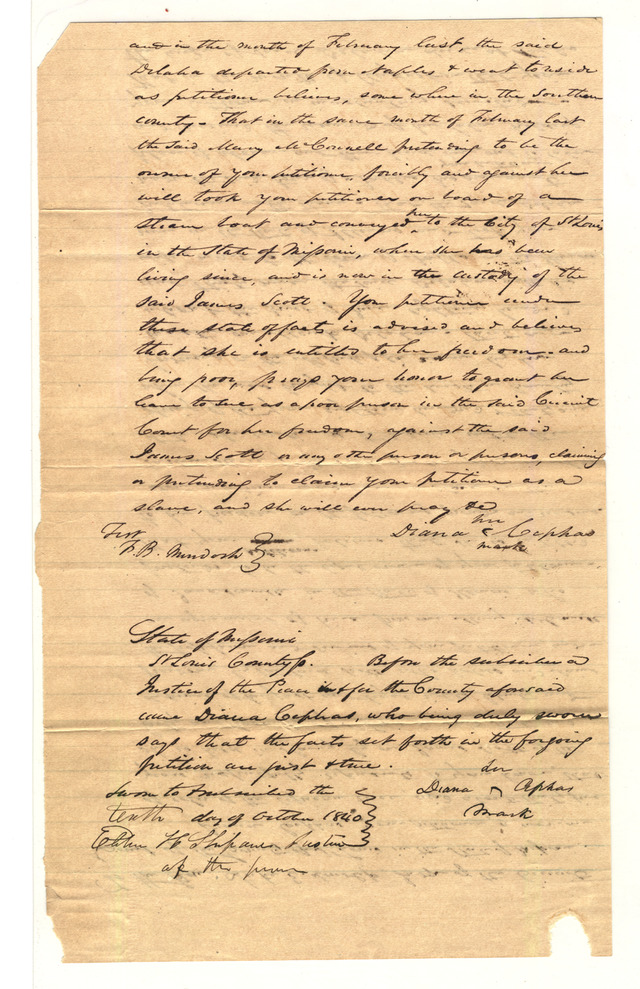 and in the month of February last, the said
Delaha departed from Naples & went to reside
as petitioner believes, some where in the Southern
county - That in the same month of February last
the said Mary McConnell pretending to be the
owner of your petitioner, forcibly and against her
will took your petitioner on board of a
steam boat and conveyed her to the City of St Louis
in the State of Missouri, where she has been
living since, and is now in the custody of the
said James Scott. Your petitioner under
these state of facts is advised and believes
that she is entitled to her freedom - and
being poor, prays your honor to grant her
leave to sue, as a poor person in the said Circuit
Court for her freedom, against the said
James Scott or any other person or persons, claiming
or pretending to claim your petitioner as a
slave, and she will ever pray &c
Diana her Cephas
mark
Test
F. B. Murdoch
State of Missouri
St Louis County Ss. Before the subscriber a
Justice of the Peace in & for the County aforesaid
came Diana Cephas, who being duly sworn
says that the facts set forth in the forgoing
petition are just & true.
her
Diana Cephas
mark
Sworn to & subscribed the
tenth day of October 1840
H Justice
of the peace